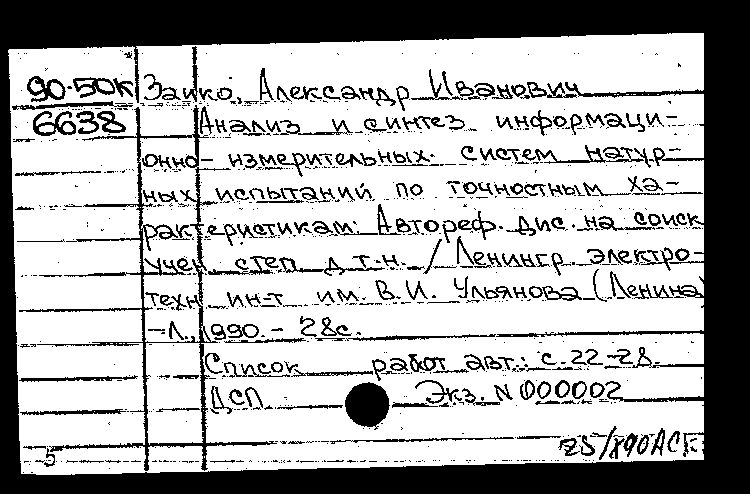 90-50к Заико, Александр Иванович
6638 Анализ и синтез информаци-
онно-измерительных систем натур-
ных испытаний по точностным ха-
рактеристикам: Автореф. дис. на соиск
учен. степ. д.т.н. / Ленингр. электро-
техн. ин-т им. В.И. Ульянова (Ленина)
-Л., 1990.- 28с.
Список работ авт.: с. 22-28.
ДСП Экз. N 000002
5